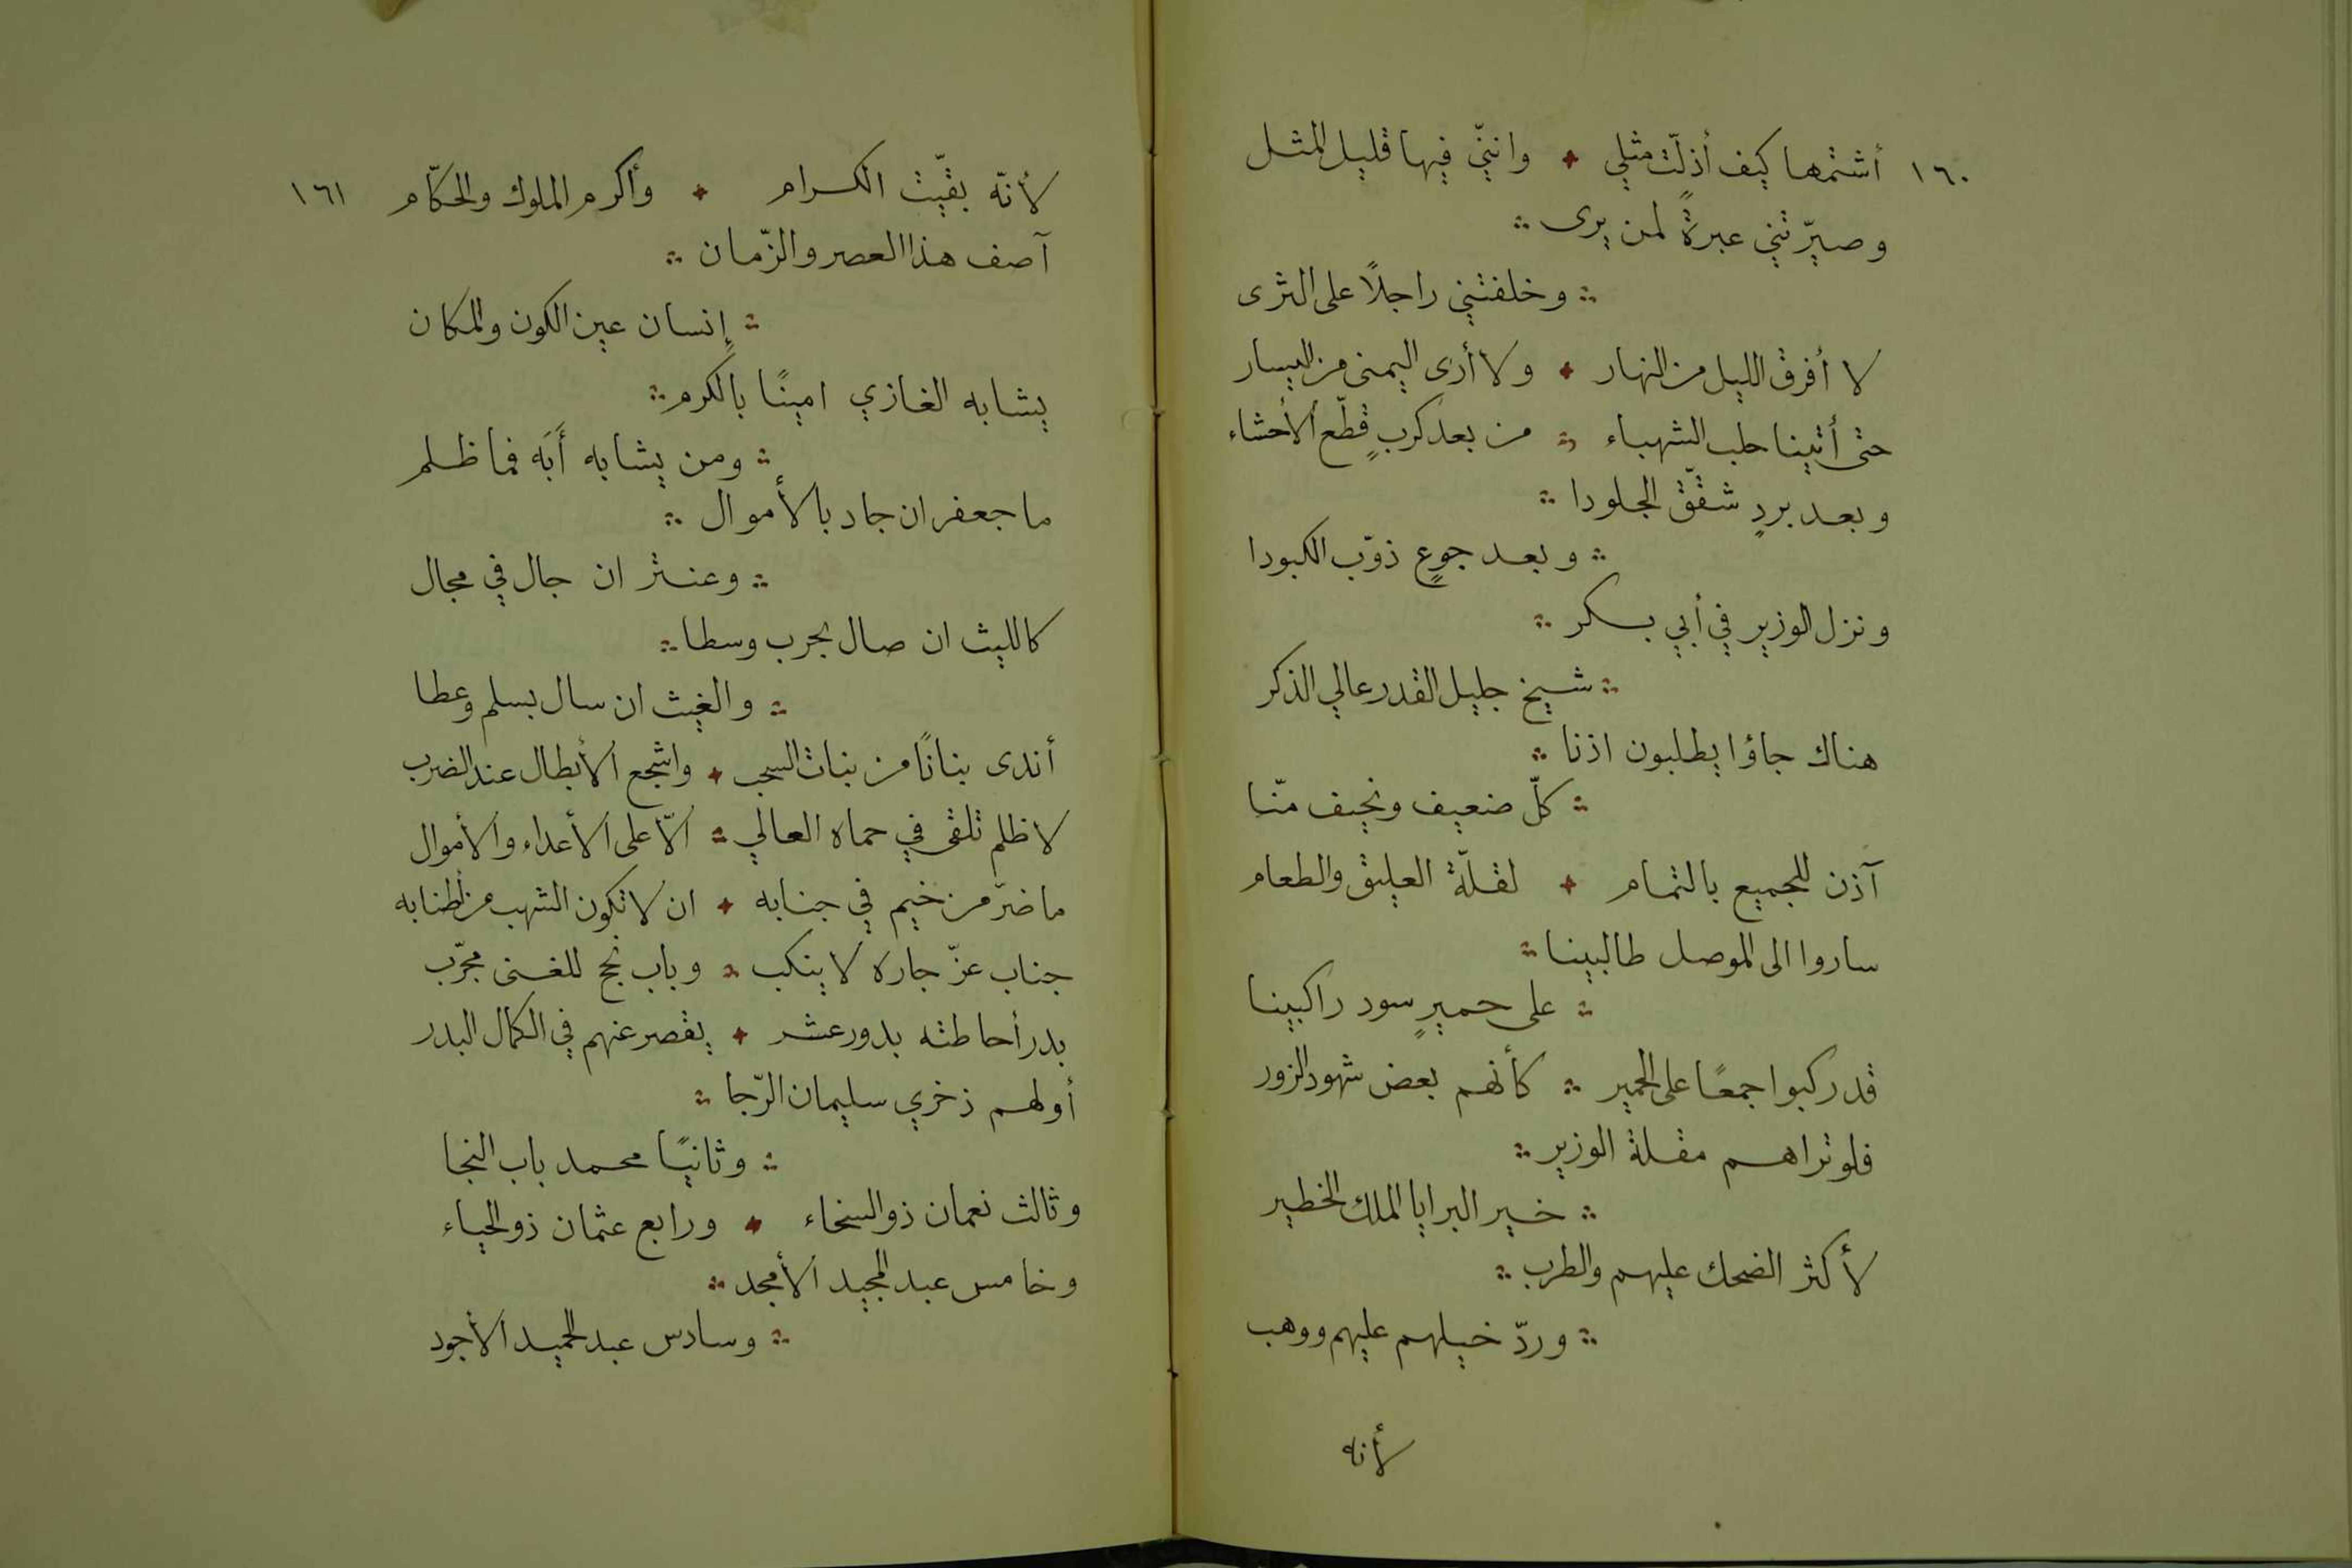 ١٦٠ أشتمها كيف أذلّت مثلي وانني فيها قليل المثل
وصيّرتني عبرةً لمن يرى
وخلفتني راجلاً على الثرى
لا أفرق الليل من النهار ولا أرى اليمنى من اليسار
حتى أتينا حلب الشهباء من بعد كربٍ قطّع الأحشاء
وبعد بردٍ شقّق الجلودا
وبعد جوعٍ ذوّب الكبودا
ونزل الوزير في أبي بكر
شيخ جليل القدر عالي الذكر
هناك جاؤا يطلبون اذنا
كلّ ضعيف ونحيف منّا
آذن للجميع بالتمام لقلّة العليق والطعام
ساروا الى الموصل طالبينا
على حميرٍ سود راكبينا
قد ركبوا جمعًا على الحمير كأنهم بعض شهود الزور
فلو تراهم مقلة الوزير
خير البرايا الملك الخطير
لأكثر الضحك عليهم والطرب
وردّ خيلهم عليهم ووهب
لأنه
لأنّه بقيّت الكرام وأكرم الملوك والحكّام ١٦١
آصف هذا العصر والزّمان
إنسان عين الكون والمكان
يشابه الغازي امينًا بالكرم
ومن يشابه أَبَه فما ظلم
ما جعفر ان جاد بالأموال
وعنتر ان جال في مجال
كالليث ان صال بحرب وسطا
والغيث ان سال بسلم وعطا
أندى بنانًا من بنات السحب واشجع الأبطال عند الضرب
لا ظلم تلقى في حماه العالي الّا على الأعداء والأموال
ما ضرّ من خيم في جنابه ان لا تكون الشهب من أطنابه
جناب عزّ جاره لا ينكب وباب نجح للغنى مجرّب
بدر أحاطته بدور عشر يقصر عنهم في الكمال البدر
أولهم ذخري سليمان الرّجا
وثانيًا محمد باب النجا
وثالث نعمان ذو السخاء ورابع عثمان ذو الحياء
وخامس عبد المجيد الأمجد
وسادس عبد الحميد الأجود